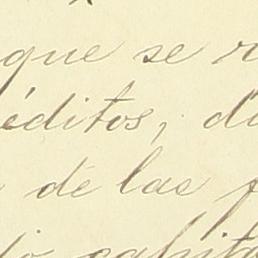 que se r
éditos, di
de las f
capita